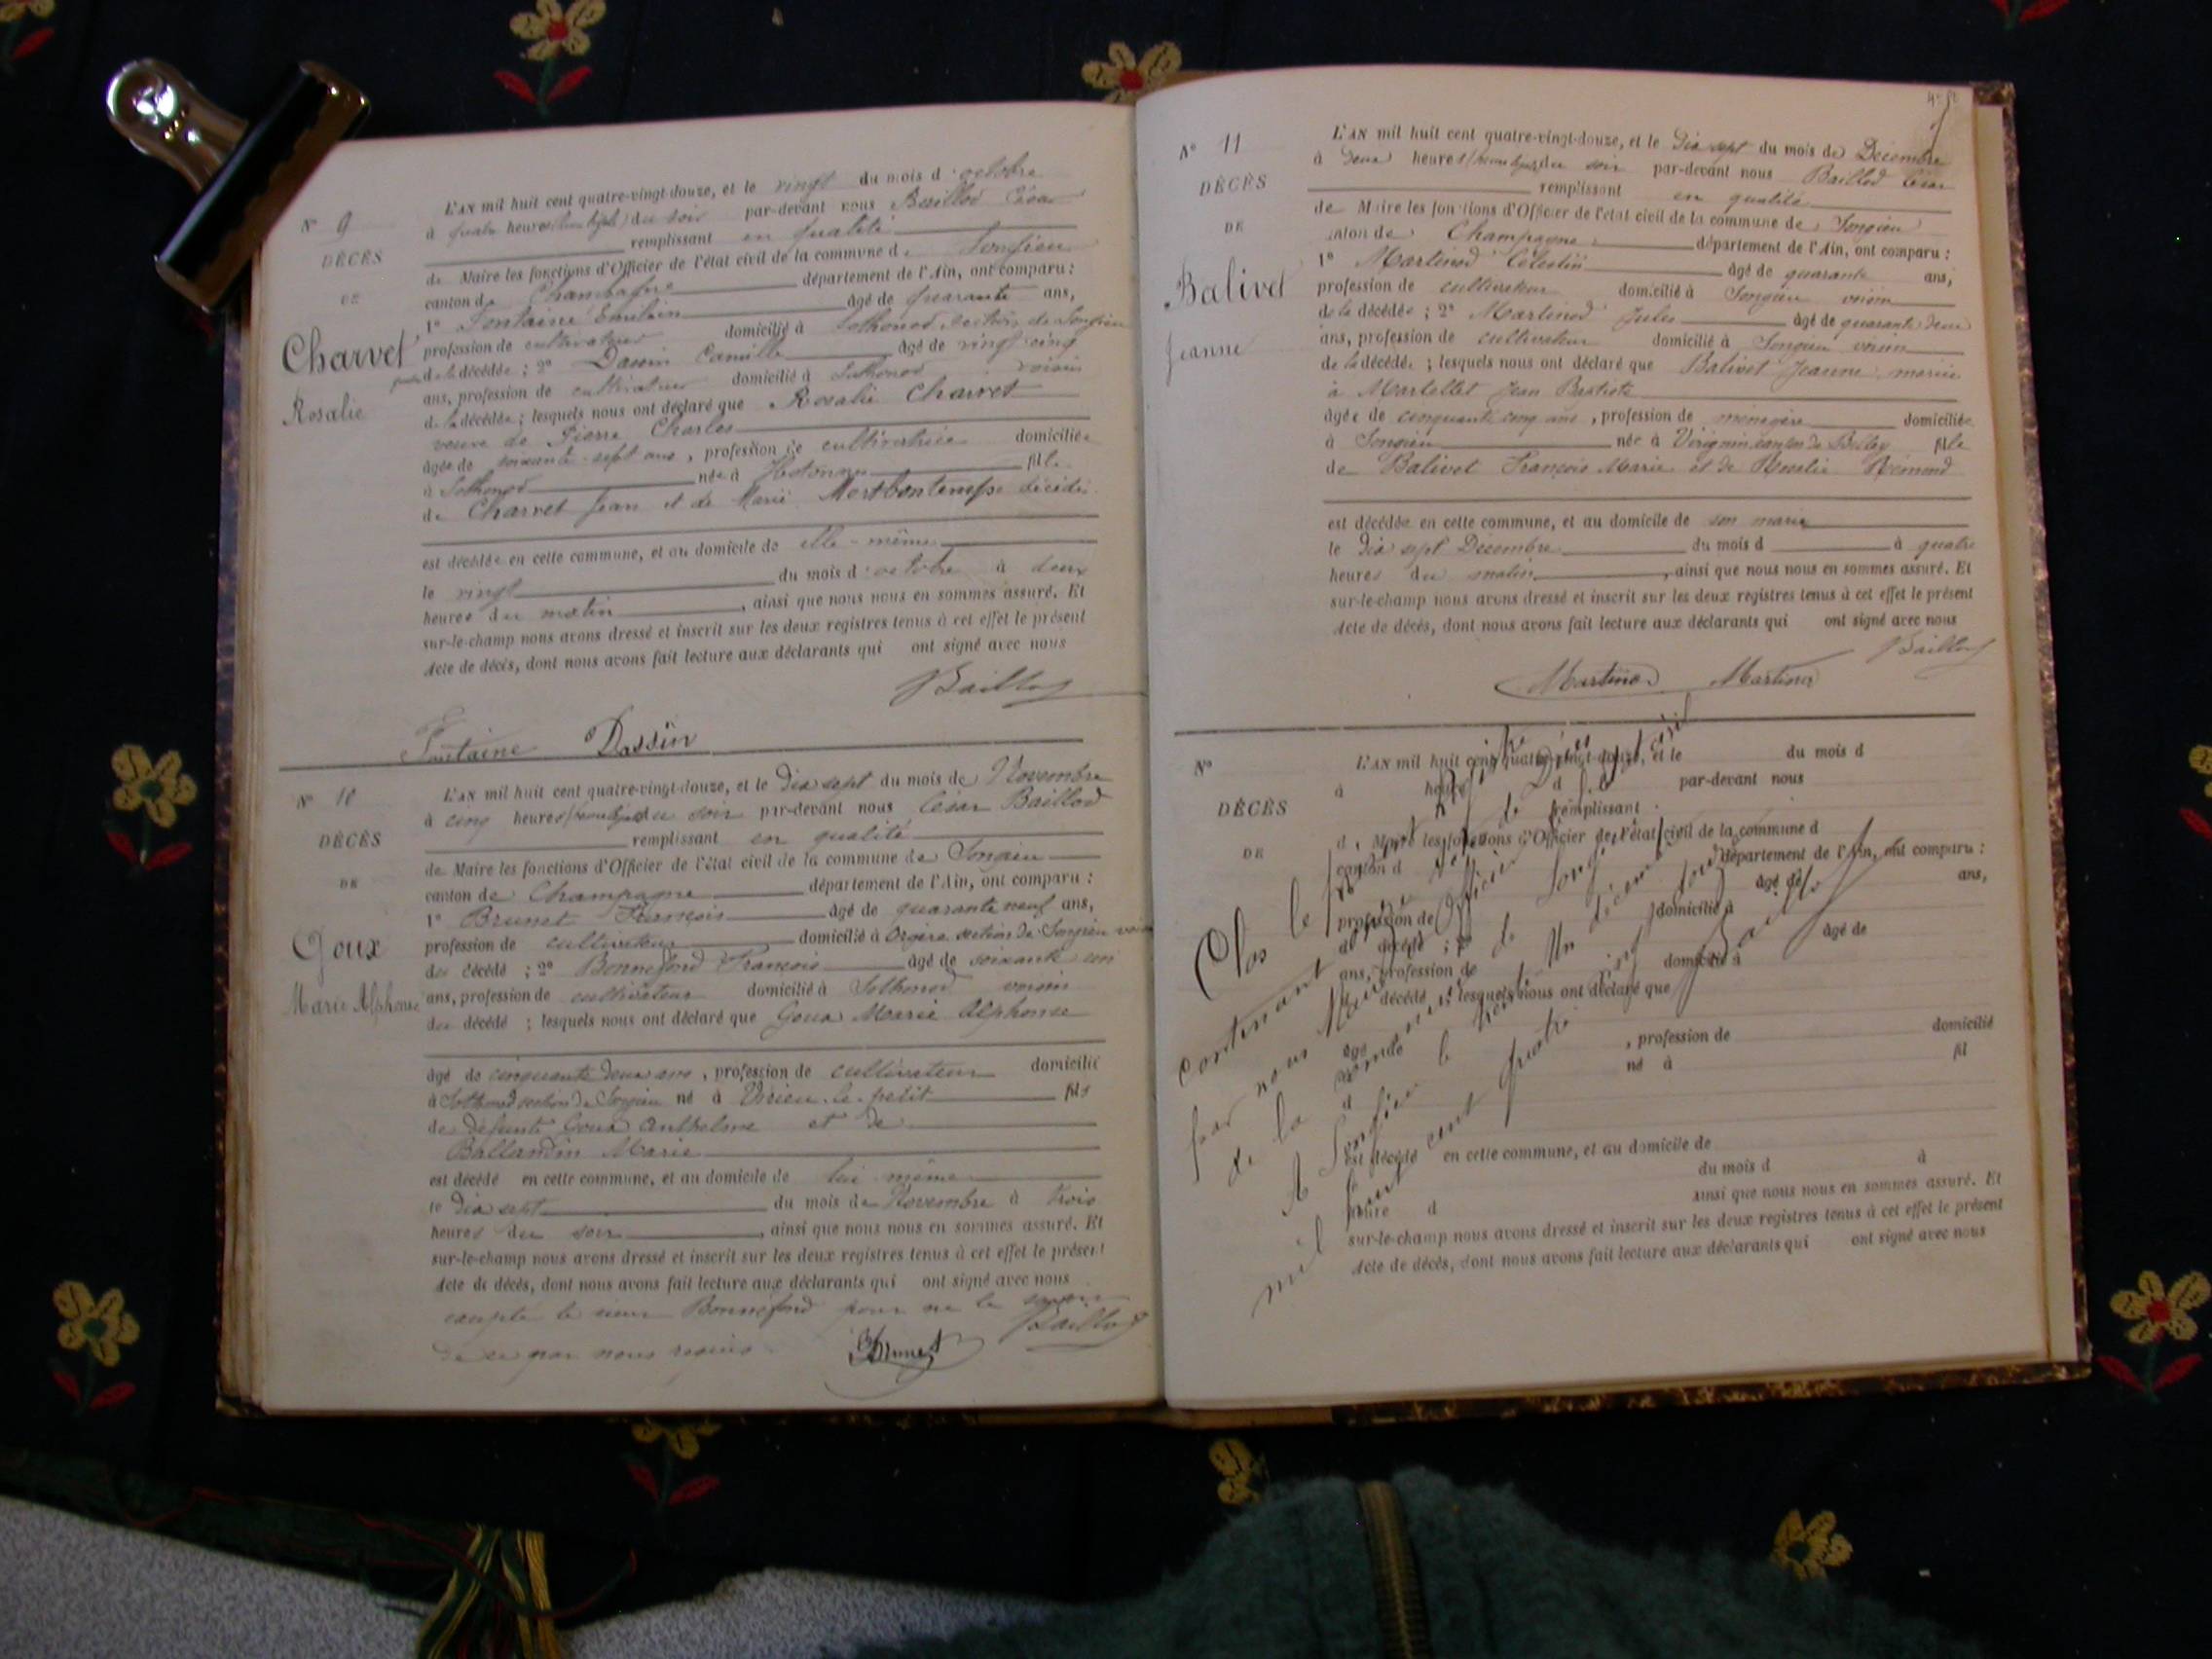 N° 9
DÉCÈS
DE
Charvet
Rosalie
L'AN mil huit cent quatre-vingt-douze, et le vingt du mois d'octobre
à quatre heures du soir par-devant nous Baillod César
remplissant en qualité
de Maire les fonctions d'Officier de l'état civil de la commune de Songieu
canton de Champagne département de l'Ain, ont comparu :
1° Fontaine Emilien âgé de quarante ans,
profession de cultivateur domicilié à Sothonod section de Songieu
de la décédée ; 2° Dassin Camille âgé de vingt cinq
ans, profession de cultivateur domicilié à Sothonod voisin
de la décédée ; lesquels nous ont déclaré que Rosalie Charvet
veuve de Pierre Charles
âgée de soixante-sept ans, profession de cultivatrice domiciliée
à Sothonod née à Hotonnes fille
de Charvet Jean et de Marie Montbontemps décédés
est décédée en cette commune, et au domicile de elle-même
le vingt du mois d'octobre à deux
heures du matin, ainsi que nous nous en sommes assuré. Et
sur-le-champ nous avons dressé et inscrit sur les deux registres tenus à cet effet le présent
Acte de décès, dont nous avons fait lecture aux déclarants qui ont signé avec nous
Baillod
Fontaine Dassin
N° 10
DÉCÈS
DE
Goux
Marie Alphonse
L'AN mil huit cent quatre-vingt-douze, et le Dix sept du mois de Novembre
à cinq heures du soir par-devant nous César Baillod
remplissant en qualité
de Maire les fonctions d'Officier de l'état civil de la commune de Songieu
canton de Champagne département de l'Ain, ont comparu :
1° Brunet François âgé de quarante neuf ans,
profession de cultivateur domicilié à Orgère section de Songieu voisin
du décédé ; 2° Bonnefond François âgé de soixante un
ans, profession de cultivateur domicilié à Sothonod voisin
du décédé ; lesquels nous ont déclaré que Goux Marie Alphonse
âgé de cinquante deux ans, profession de cultivateur domicilié
à Sothonod section de Songieu né à Virieu-le-petit fils
de défunts Goux Anthelme et de
Ballandin Marie
est décédé en cette commune, et au domicile de lui même
le Dix sept du mois de Novembre à trois
heures du soir, ainsi que nous nous en sommes assuré. Et
sur-le-champ nous avons dressé et inscrit sur les deux registres tenus à cet effet le présent
Acte de décès, dont nous avons fait lecture aux déclarants qui ont signé avec nous
excepté le sieur Bonnefond pour ne le savoir
de ce par nous requis. Brunet Baillod
N° 11
DÉCÈS
DE
Balivet
Jeanne
L'AN mil huit cent quatre-vingt-douze, et le Dix sept du mois de Décembre
à deux heures du soir par-devant nous Baillod César
remplissant en qualité
de Maire les fonctions d'Officier de l'état civil de la commune de Songieu
canton de Champagne département de l'Ain, ont comparu :
1° Martinod Célestin âgé de quarante ans,
profession de cultivateur domicilié à Songieu voisin
de la décédée ; 2° Martinod Jules âgé de quarante deux
ans, profession de cultivateur domicilié à Songieu voisin
de la décédée ; lesquels nous ont déclaré que Balivet Jeanne mariée
à Martellet Jean Baptiste
âgée de cinquante cinq ans, profession de ménagère domiciliée
à Songieu née à Virignin canton de Belley fille
de Balivet François Marie et de Roselie Rémond
est décédée en cette commune, et au domicile de son marie
le Dix sept Décembre du mois d à quatre
heures du matin, ainsi que nous nous en sommes assuré. Et
sur-le-champ nous avons dressé et inscrit sur les deux registres tenus à cet effet le présent
Acte de décès, dont nous avons fait lecture aux déclarants qui ont signé avec nous
Baillod
Martinod Martinod
N°
DÉCÈS
DE
L'AN mil huit cent quatre-vingt-douze, et le du mois d
à heures d par-devant nous
remplissant
d Maire les fonctions d'Officier de l'état civil de la commune d
canton d département de l'Ain, ont comparu :
âgé de ans,
profession de domicilié à
d décédé ; 2° âgé de
ans, profession de domicilié à
d décédé ; lesquels nous ont déclaré que
âgé , profession de domicilié
à né à fil
d
est décédé en cette commune, et au domicile de
le du mois d à
heure d ainsi que nous nous en sommes assuré. Et
sur-le-champ nous avons dressé et inscrit sur les deux registres tenus à cet effet le présent
Acte de décès, dont nous avons fait lecture aux déclarants qui ont signé avec nous
Clos le
contenant
par nous Maire Officier
de la commune de Songieu
A Songieu le trente Un décembre
mil huit cent quatre vingt douze
Baillod